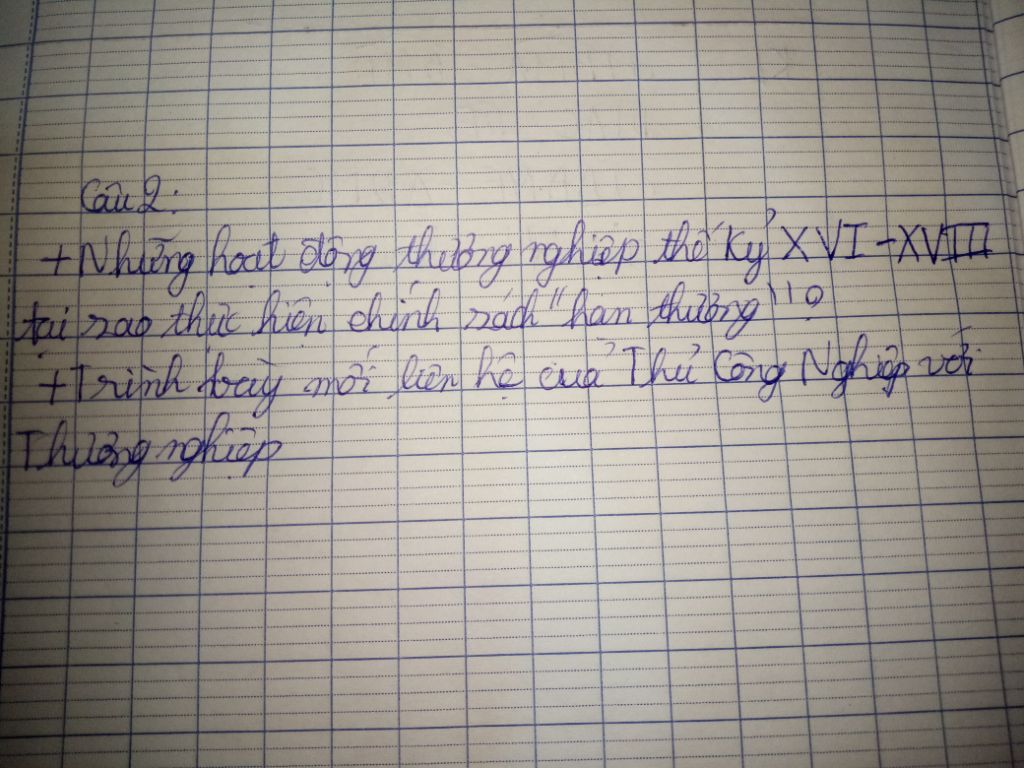 Câu 2:
+ Những hoạt động thương nghiệp thế kỷ XVI - XVIII
tại sao thức hiện chính sách "hạn thương"?
+ Trình bày mối liên hệ của Thủ Công Nghiệp với
Thương nghiệp